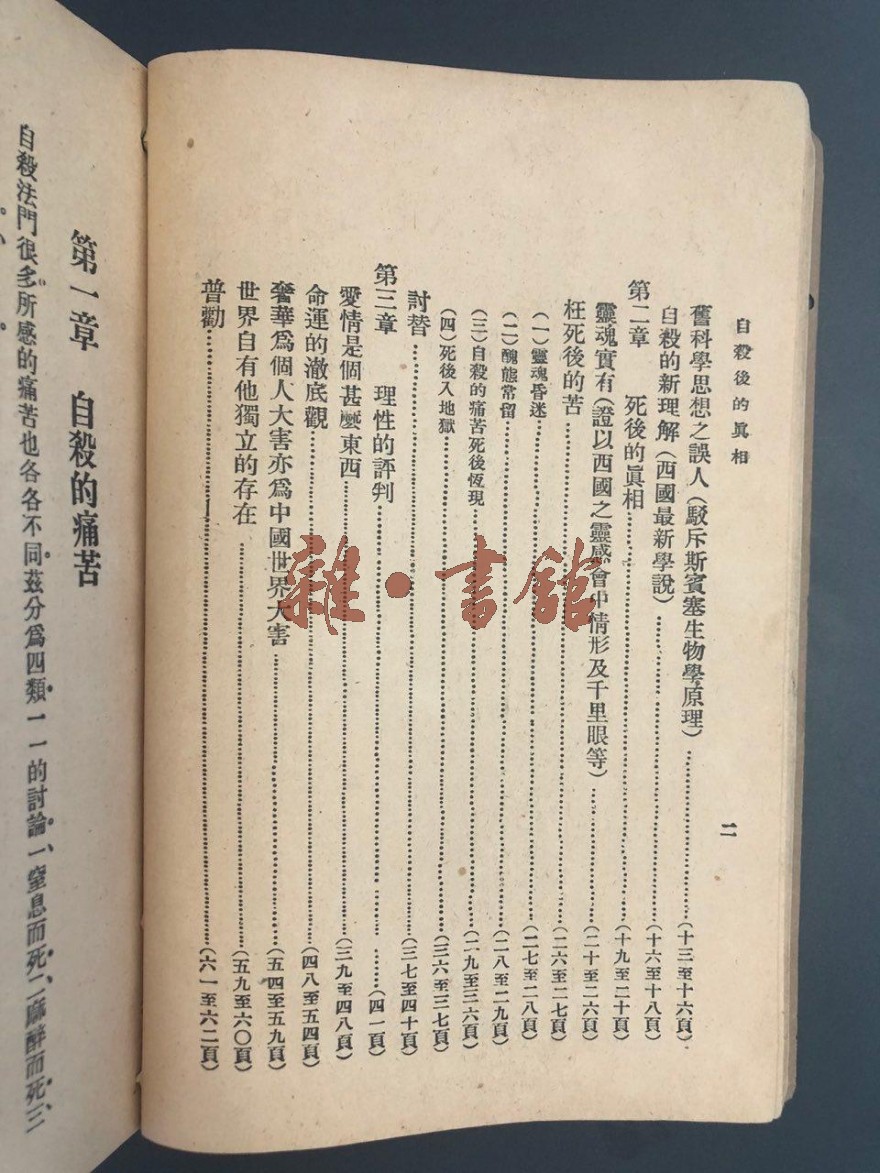 自殺後的眞相
二
舊科學思想之誤人(駁斥斯賓塞生物學原理)……(十三至十六頁)
自殺的新理解(西國最新學說)……(十六至十八頁)
第二章 死後的眞相……(十九至二十頁)
靈魂實有(證以西國之靈感會中情形及千里眼等)……(二十至二六頁)
枉死後的苦……(二六至二七頁)
(一)靈魂昏迷……(二七至二八頁)
(二)醜態常留……(二八至二九頁)
(三)自殺的痛苦死後恆現……(二九至三六頁)
(四)死後入地獄……(三六至三七頁)
討替……(三七至四十頁)
第三章 理性的評判……(四一頁)
愛情是個甚麼東西……(三九至四八頁)
命運的澈底觀……(四八至五四頁)
奢華爲個人大害亦爲中國世界大害……(五四至五九頁)
世界自有他獨立的存在……(五九至六〇頁)
普勸……(六一至六二頁)
第一章 自殺的痛苦
自殺法門很多所感的痛苦也各各不同。茲分爲四類。一一的討論。一、窒息而死。二、麻醉而死。三、
雜·書館